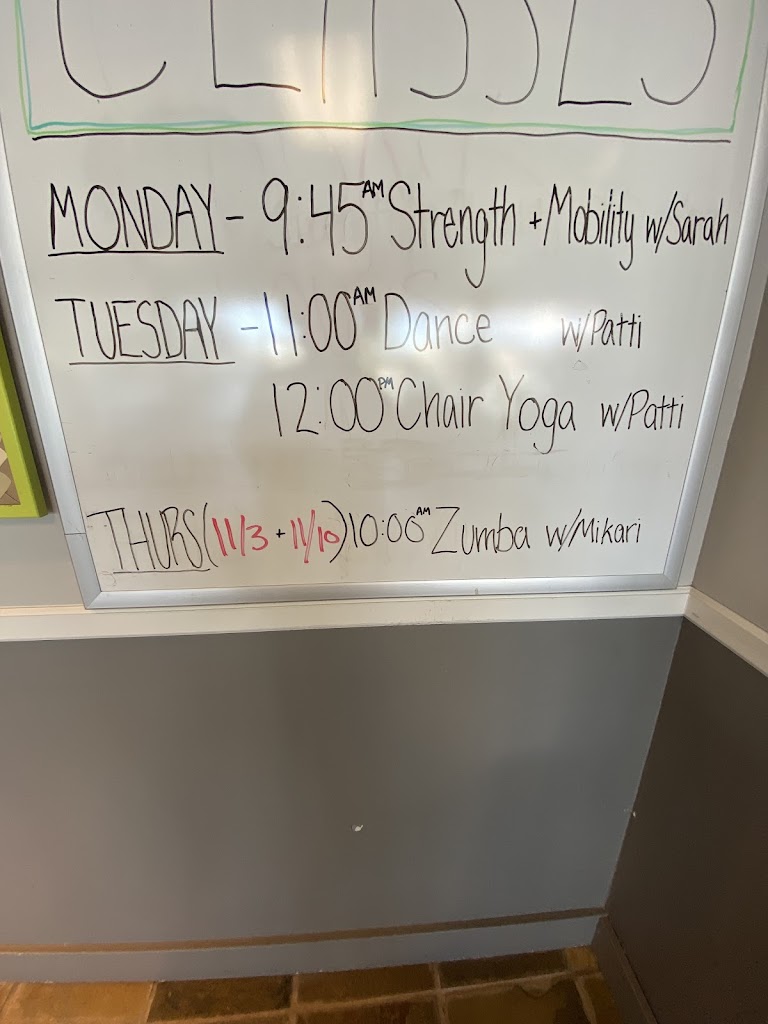 CLASSES
MONDAY - 9:45 AM Strength + Mobility w/Sarah
TUESDAY - 11:00 AM Dance w/Patti
12:00 PM Chair Yoga w/Patti
THURS (11/3 + 11/10) 10:00 AM Zumba w/Mikari